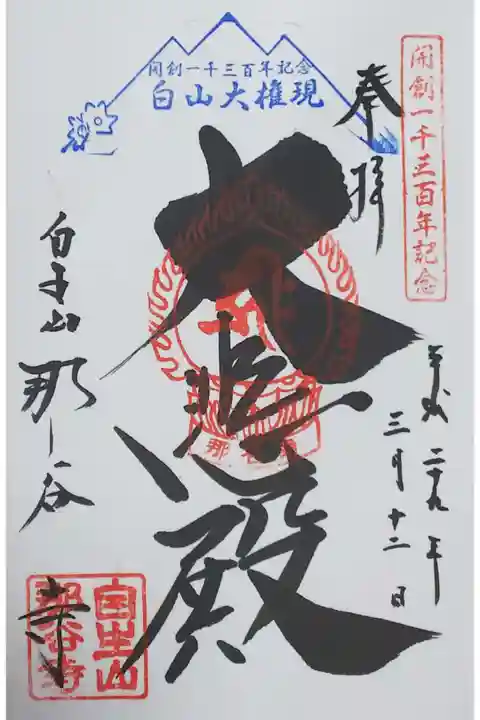 開創一千三百年記念
開創一千三百年記念
白山大権現
奉拝
平成二十九年
三月十二日
大悲殿
那谷寺
自生山那谷寺
自生山
那谷寺